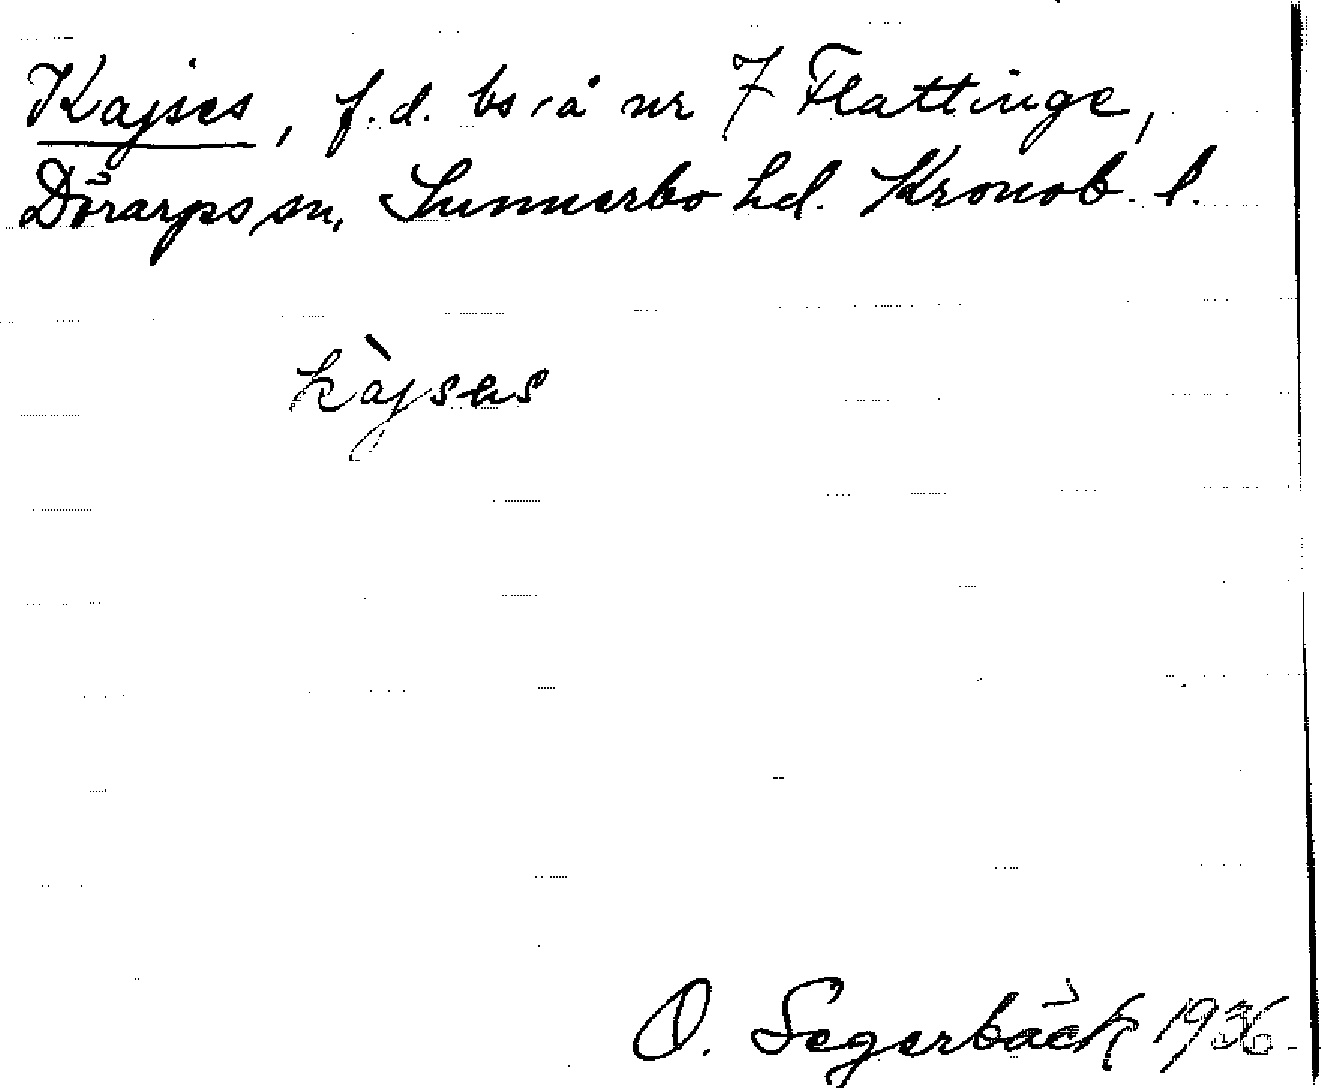 Kajses, f.d. bs. å nr 7 Flattinge,
Dörarps sn, Sunnerbo hd. Kronob. l.
kàjsas
O. Segerbäck 1936